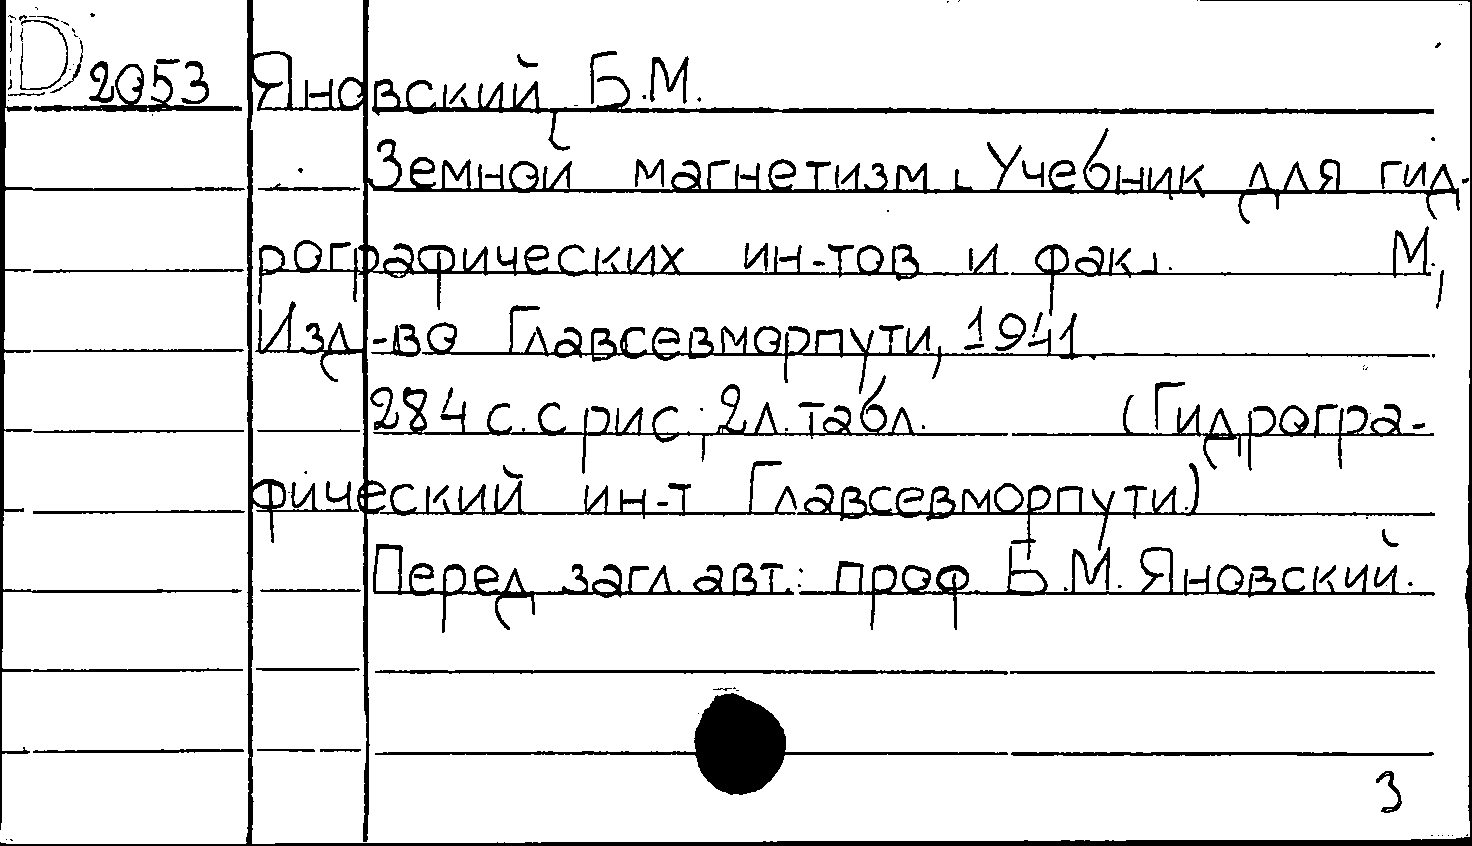 D 2053 Яновский, Б.М.
Земной магнетизм. Учебник для гид-
рографических ин-тов и фак. М.,
Изд-во Главсевморпути, 1941.
284 с. с рис.; 2 л. табл. (Гидрогра-
фический ин-т Главсевморпути)
Перед загл. авт.: проф. Б.М. Яновский.
3